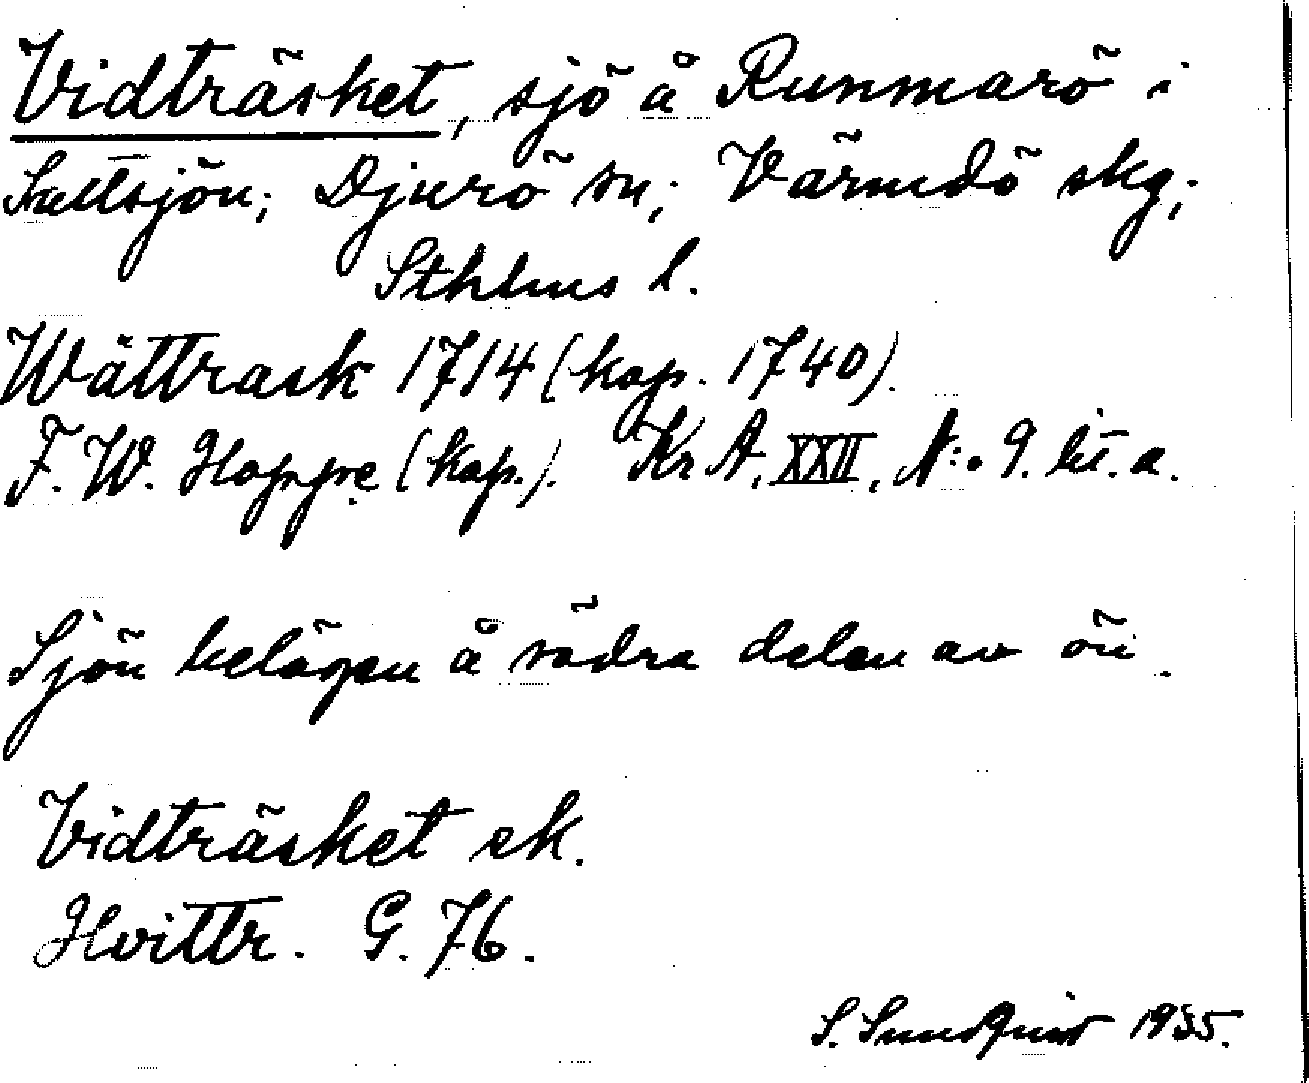 Vidträsket, sjö å Runmarö i
Saltsjön; Djurö sn; Värmdö skg;
Sthlms l.
Wättrask 1714 (kop. 1740).
F. W. Hoppe (kop.). Kr A, XXII, N:o 9. lit. a.
Sjön belägen å södra delen av ön.
Vidträsket ek.
Hvittr. G. 76.
S. Sundquist 1935.